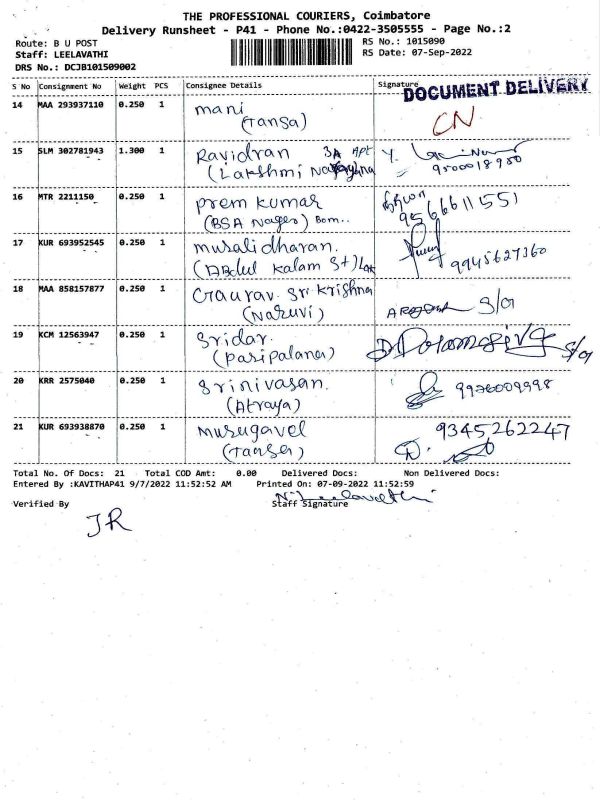 THE PROFESSIONAL COURIERS, Coimbatore
Delivery Runsheet - P41 - Phone No.:0422-3505555 - Page No.:2
Route: B U POST
RS No.: 1015090
Staff: LEELAVATHI
RS Date: 07-Sep-2022
DRS No.: DCJB101509002
S No Consignment No Weight PCS Consignee Details Signature
DOCUMENT DELIVERY
14 MAA 293937110 0.250 1 mani
(Tansa)
CN
15 SLM 302781943 1.300 1 Ravidran 3A Apt
(Lakshmi
9500018980
16 MTR 2211150 0.250 1 Prem kumar
(BSA Nager) Bom..
9566611551
17 KUR 693952545 0.250 1 musalidharan.
(Abdul kalam St)
9945627360
18 MAA 858157877 0.250 1 Gaurav. Sri Krishna
(Naruvi)
S/o
19 KCM 12563947 0.250 1 Sridar.
(Paripalana)
S/o
20 KRR 2575040 0.250 1 Srinivasan.
(Atraya)
9976009998
21 KUR 693938870 0.250 1 Murugavel
(Tansa)
9345262247
Total No. Of Docs: 21 Total COD Amt: 0.00 Delivered Docs: Non Delivered Docs:
Entered By :KAVITHAP41 9/7/2022 11:52:52 AM Printed On: 07-09-2022 11:52:59
N. Leelavathi
Verified By Staff Signature
JR